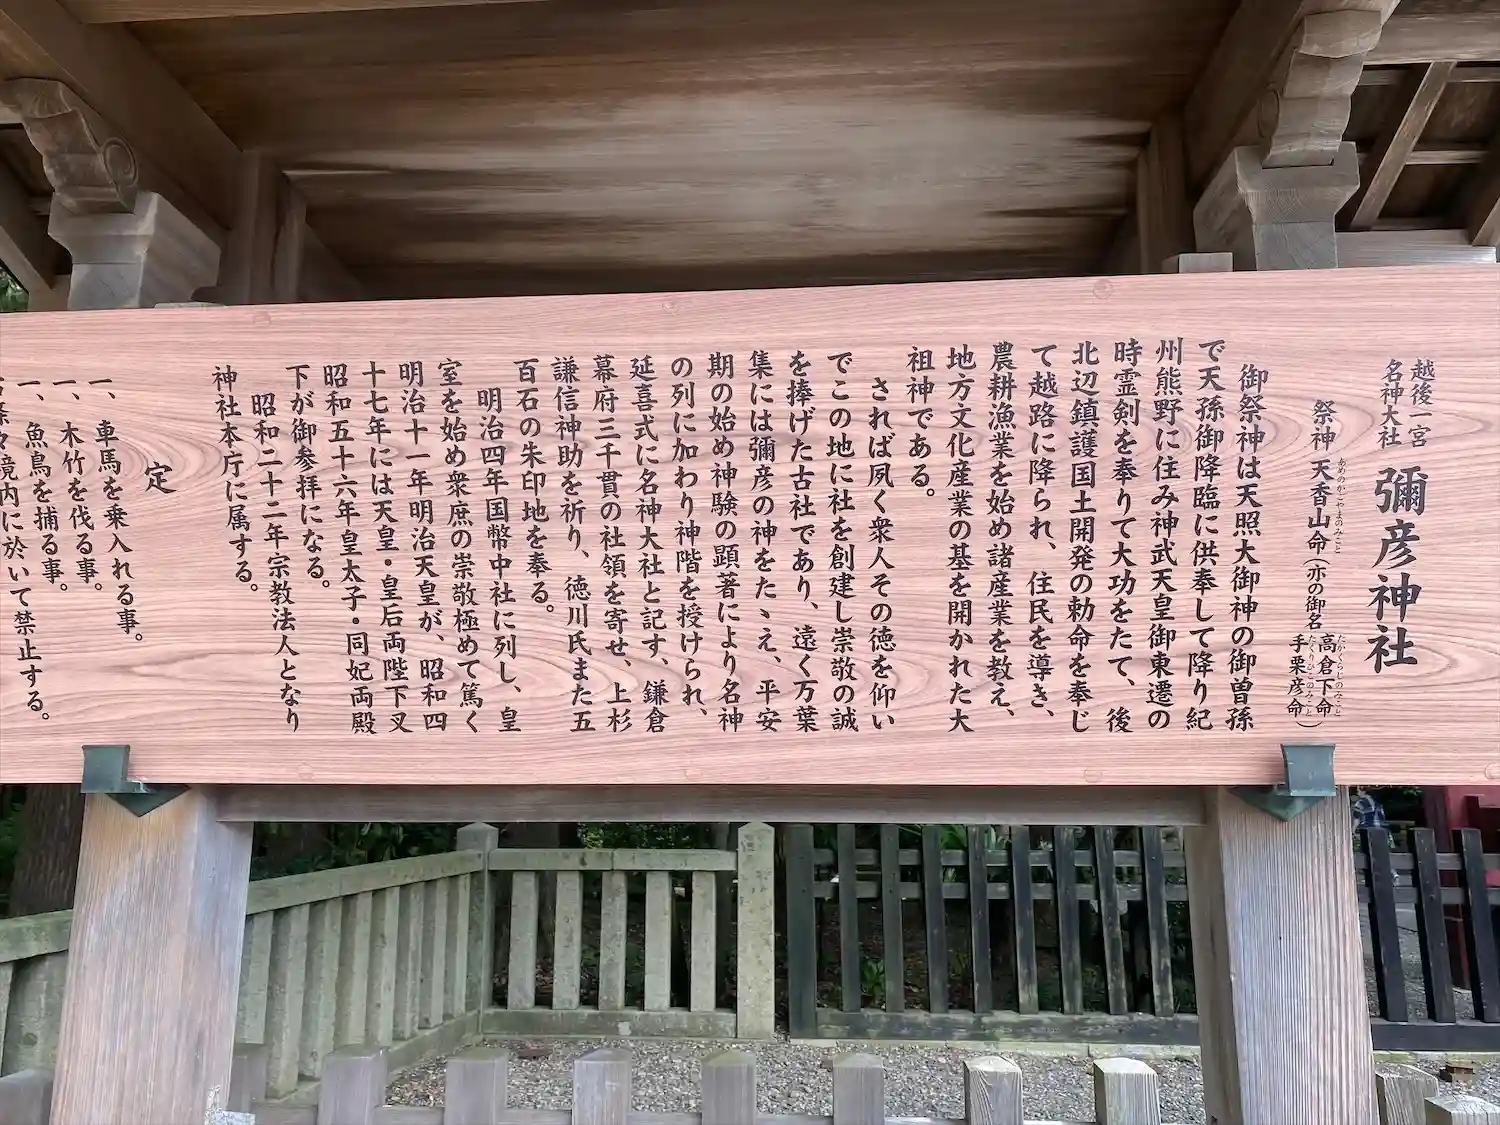 越後一宮
名神大社
彌彦神社
祭神 天香山命（亦の御名 高倉下命
手栗彦命）
あめのかごやまのみこと
たかくらじのみこと
たくりひこのみこと
御祭神は天照大御神の御曽孫
で天孫御降臨に供奉して降り紀
州熊野に住み神武天皇御東遷の
時霊剣を奉りて大功をたて、後
北辺鎮護国土開発の勅命を奉じ
て越路に降られ、住民を導き、
農耕漁業を始め諸産業を教え、
地方文化産業の基を開かれた大
祖神である。
されば夙く衆人その徳を仰い
でこの地に社を創建し崇敬の誠
を捧げた古社であり、遠く万葉
集には彌彦の神をたゝえ、平安
期の始め神験の顕著により名神
の列に加わり神階を授けられ、
延喜式に名神大社と記す、鎌倉
幕府三千貫の社領を寄せ、上杉
謙信神助を祈り、徳川氏また五
百石の朱印地を奉る。
明治四年国幣中社に列し、皇
室を始め衆庶の崇敬極めて篤く
明治十一年明治天皇が、昭和四
十七年には天皇・皇后両陛下叉
昭和五十六年皇太子・同妃両殿
下が御参拝になる。
昭和二十二年宗教法人となり
神社本庁に属する。
定
一、車馬を乗入れる事。
一、木竹を伐る事。
一、魚鳥を捕る事。
条々境内に於いて禁止する。